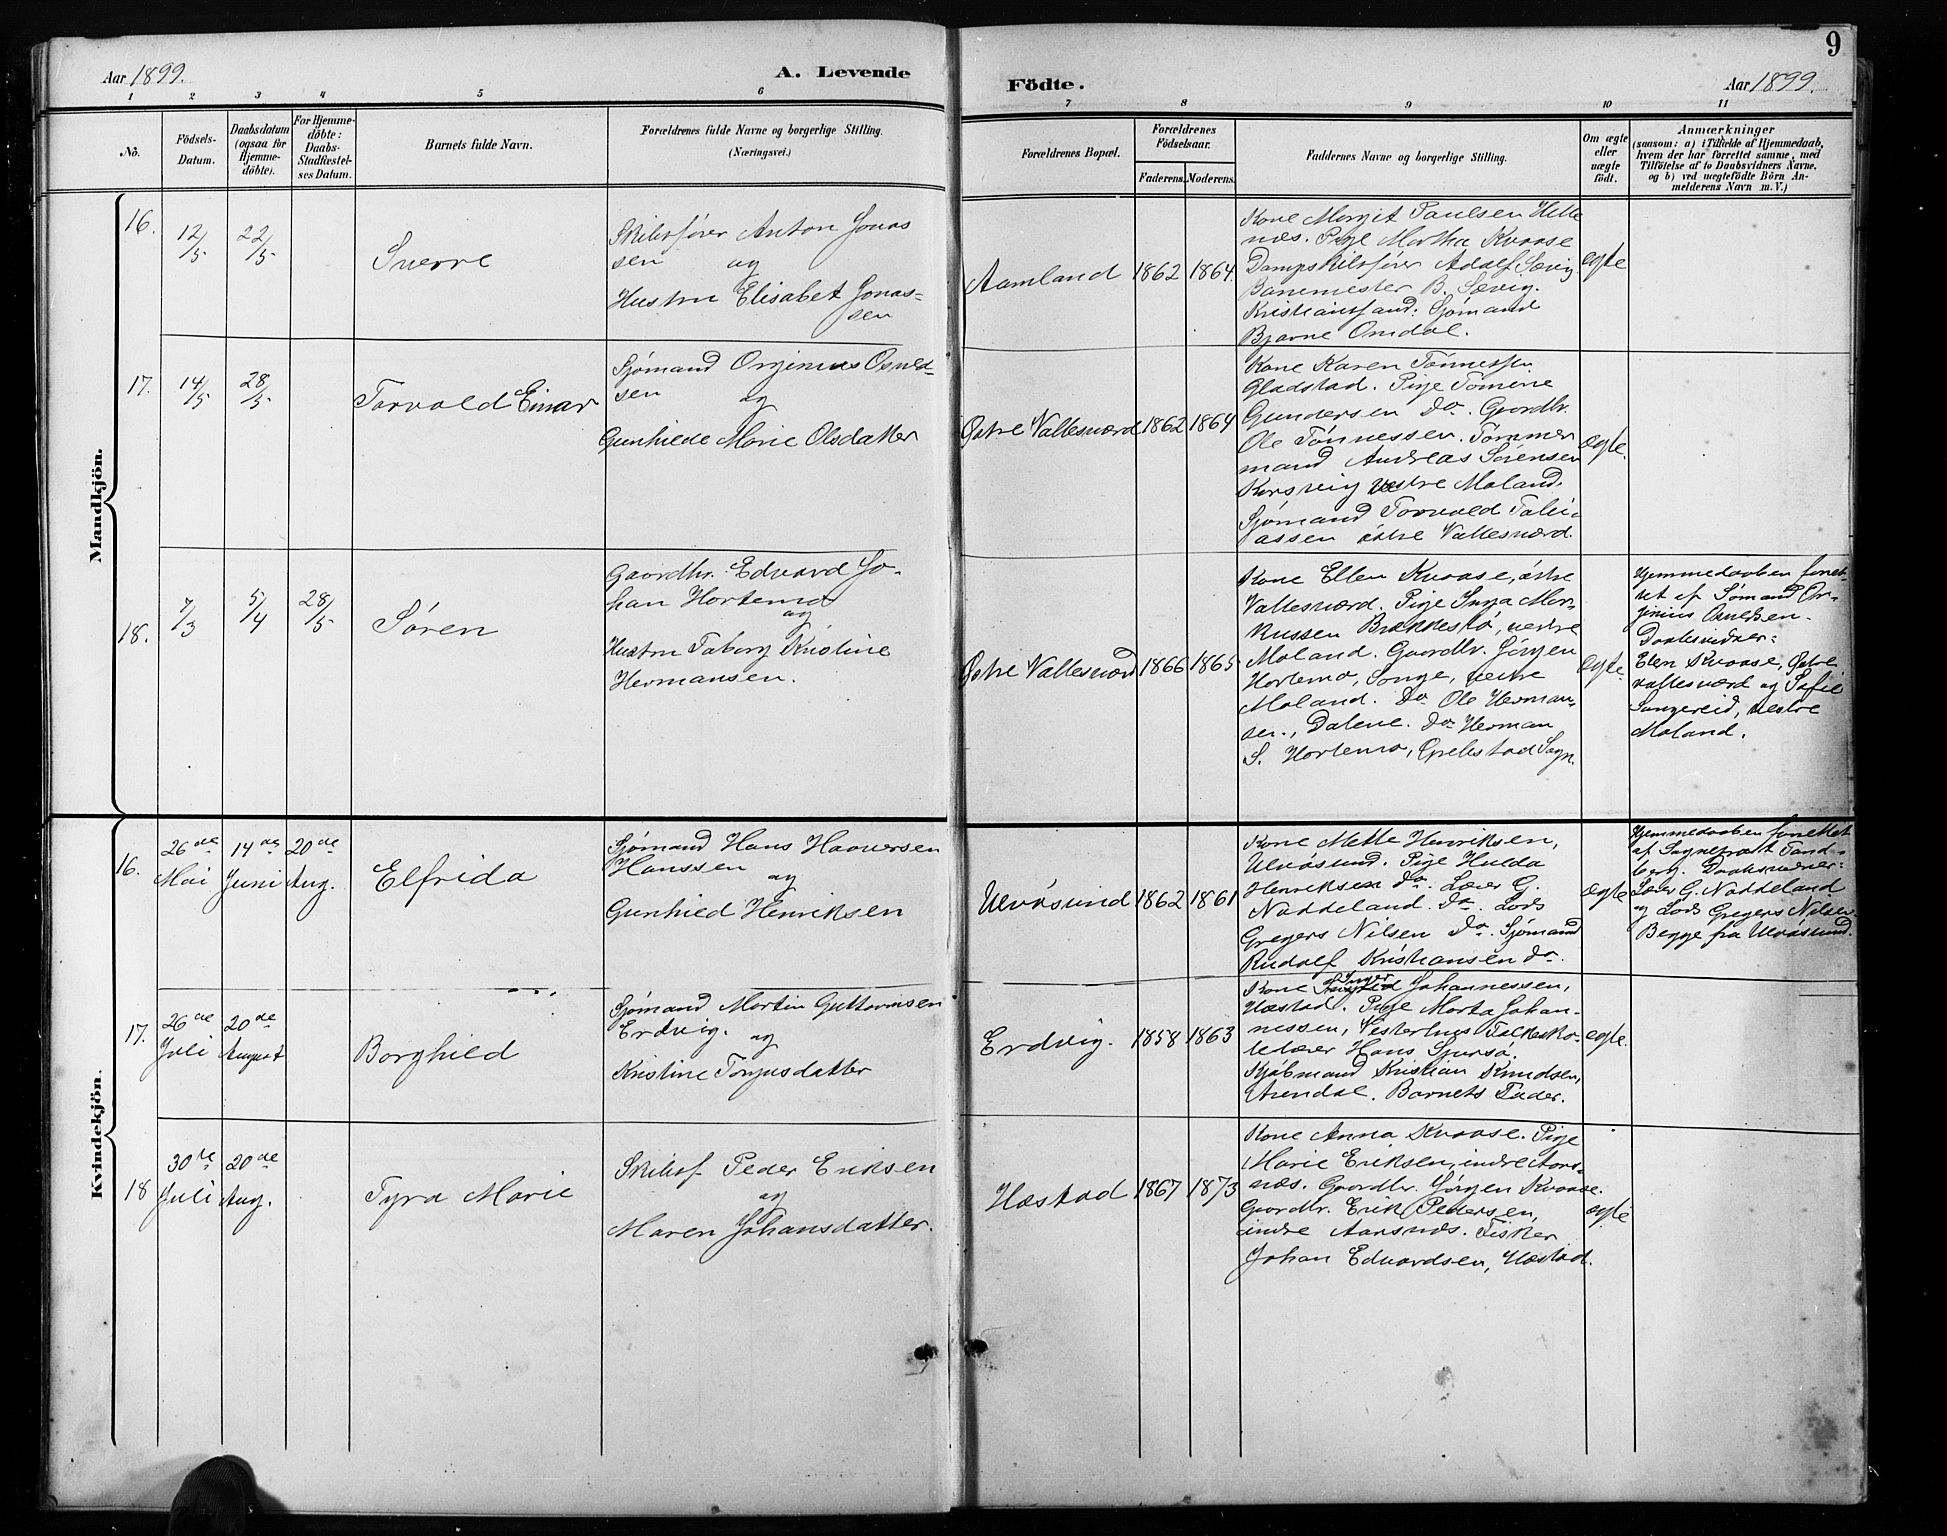 9
Aar 1899.
A. Levende
Födte.
Aar 1899.
1 2 3 4 5 6 7 8 9 10 11
No.
Födsels-
Datum.
Daabsdatum
(ogsaa for
Hjemme-
döbte).
For Hjemme-
döbte:
Daabs-
Stadfæstel-
ses Datum.
Barnets fulde Navn.
Forældrenes fulde Navne og borgerlige Stilling.
(Næringsvei.)
Forældrenes Bopæl.
Forældrenes
Födselsaar.
Faderens. Moderens.
Faddernes Navne og borgerlige Stilling.
Om ægte
eller
uægte
födt.
Anmærkninger
(saasom: a) i Tilfælde af Hjemmedaab,
hvem der har forrettet samme, med
Tilföielse af to Daabsvidners Navne,
og b) ved uægtefödte Börn An-
melderens Navn m. V.)
Mandkjön.
16.
12/5
22/5
Sverre
Skibsfører Anton Jonas
sen og
Hustru Elisabet Jonas-
sen
Aamland
1862 1864.
Kone Margit Paulsen Helle
næs. Pige Martha Kvaase
Dampskibsfører Adolf Sævig
Banemester B. Sævig.
Kristianssand. Sjømand
Bjarne Omdal.
ægte
17.
14/5
28/5
Torvald Einar
Sjømand Orginius Osuld-
sen og
Gunhilde Marie Olsdatter
Østre Vallesværd
1862 1864
Kone Karen Tønnessen
Gladstad. Pige Tomene
Gundersen Do. Gaardbr.
Ole Tønnessen. Tømmer
mand Andreas Sørensen
Korsvig vestre Moland.
Sjømand Torvald Tobi-
assen østre Vallesværd.
ægte.
18.
7/3
5/4
28/5
Søren
Gaardbr. Edvard Jo-
han Hortemo
og
Hustru Taborg Kristine
Hermansen.
Østre Vallesværd
1866 1865
Kone Ellen Kvaase, østre
Vallesværd. Pige Inga Mar-
kussen Brækkestø, vestre
Moland. Gaardbr. Jørgen
Hortemo, Songe, vestre
Moland. Do Ole Herman-
sen, Dalene. Do Herman
S. Hortemo, Grebstad Sogn.
ægte.
Hjemmedaaben forret-
tet af Sømand Or-
jinius Osuldsen.
Daabsvidner:
Elen Kvaase, Østre
vallesværd og Sofie
Sangereid, vestre
Moland.
Kvindekjön.
16.
26de
Mai
14de
Juni
20de
Aug.
Elfrida
Sjømand Hans Haaversen
Hanssen og
Gunhild Henriksen
Ulvøsund
1862 1861
Kone Mette Henriksen,
Ulvøsund. Pige Hulda
Henriksen Do. Lærer G.
Noddeland. Do. Lods
Gregers Nilsen Do. Sjømand
Rudolf Kristiansen Do.
ægte
Hjemmedaaben forrettet
af Sognepræst Tand-
berg. Daabsvidner:
Lærer G. Noddeland
og Lods Gregers Nilsen
Begge fra Ulvøsund.
17.
26de
Juli
20de
August
Borghild
Sjømand Martin Guttormsen
Erdvig. og
Kristine Torjusdatter
Erdvig.
1858 1863
Kone Inger Johannessen,
Hæstad. Pige Marta Johan-
nessen, Vesterhus Folkesko-
lelærer Hans Sjursø.
Kjøbmand Kristian Knudsen,
Arendal. Barnets Fader.
ægte.
18
30te
Juli
20de
Aug.
Tyra Marie
Skibsf Peder Eriksen
og
Maren Johansdatter.
Hæstad
1867 1873
Kone Anna Kvaase. Pige
Marie Eriksen, indre Aars-
næs. Gaardbr. Jørgen Kvaase.
Gaardbr. Erik Pedersen,
indre Aarsnæs. Fisker
Johan Edvardsen, Hæstad.
ægte